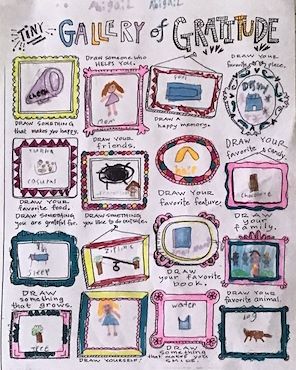 Abigail Abigail
TINY GALLERY of GRATITUDE
cheer
DRAW SOMETHING
that makes you happy.
DRAW SOMEONE who
HELPS YOU.
Mom
DRAW A
happy memory.
DRAW YOUR
favorite place.
DRAW YOUR
favorite food.
DRAW YOUR
friends.
DRAW YOUR
favorite feature.
DRAW YOUR
favorite candy.
chocolate
DRAW SOMETHING
you are grateful for.
sleep
DRAW SOMETHING
you like to do outside.
zipline
DRAW
your favorite
book.
DRAW
your
family.
DRAW
something
that grows.
tree
DRAW YOURSELF!
water
DRAW
something
that makes you
SMILE.
DRAW YOUR
favorite animal.
dog